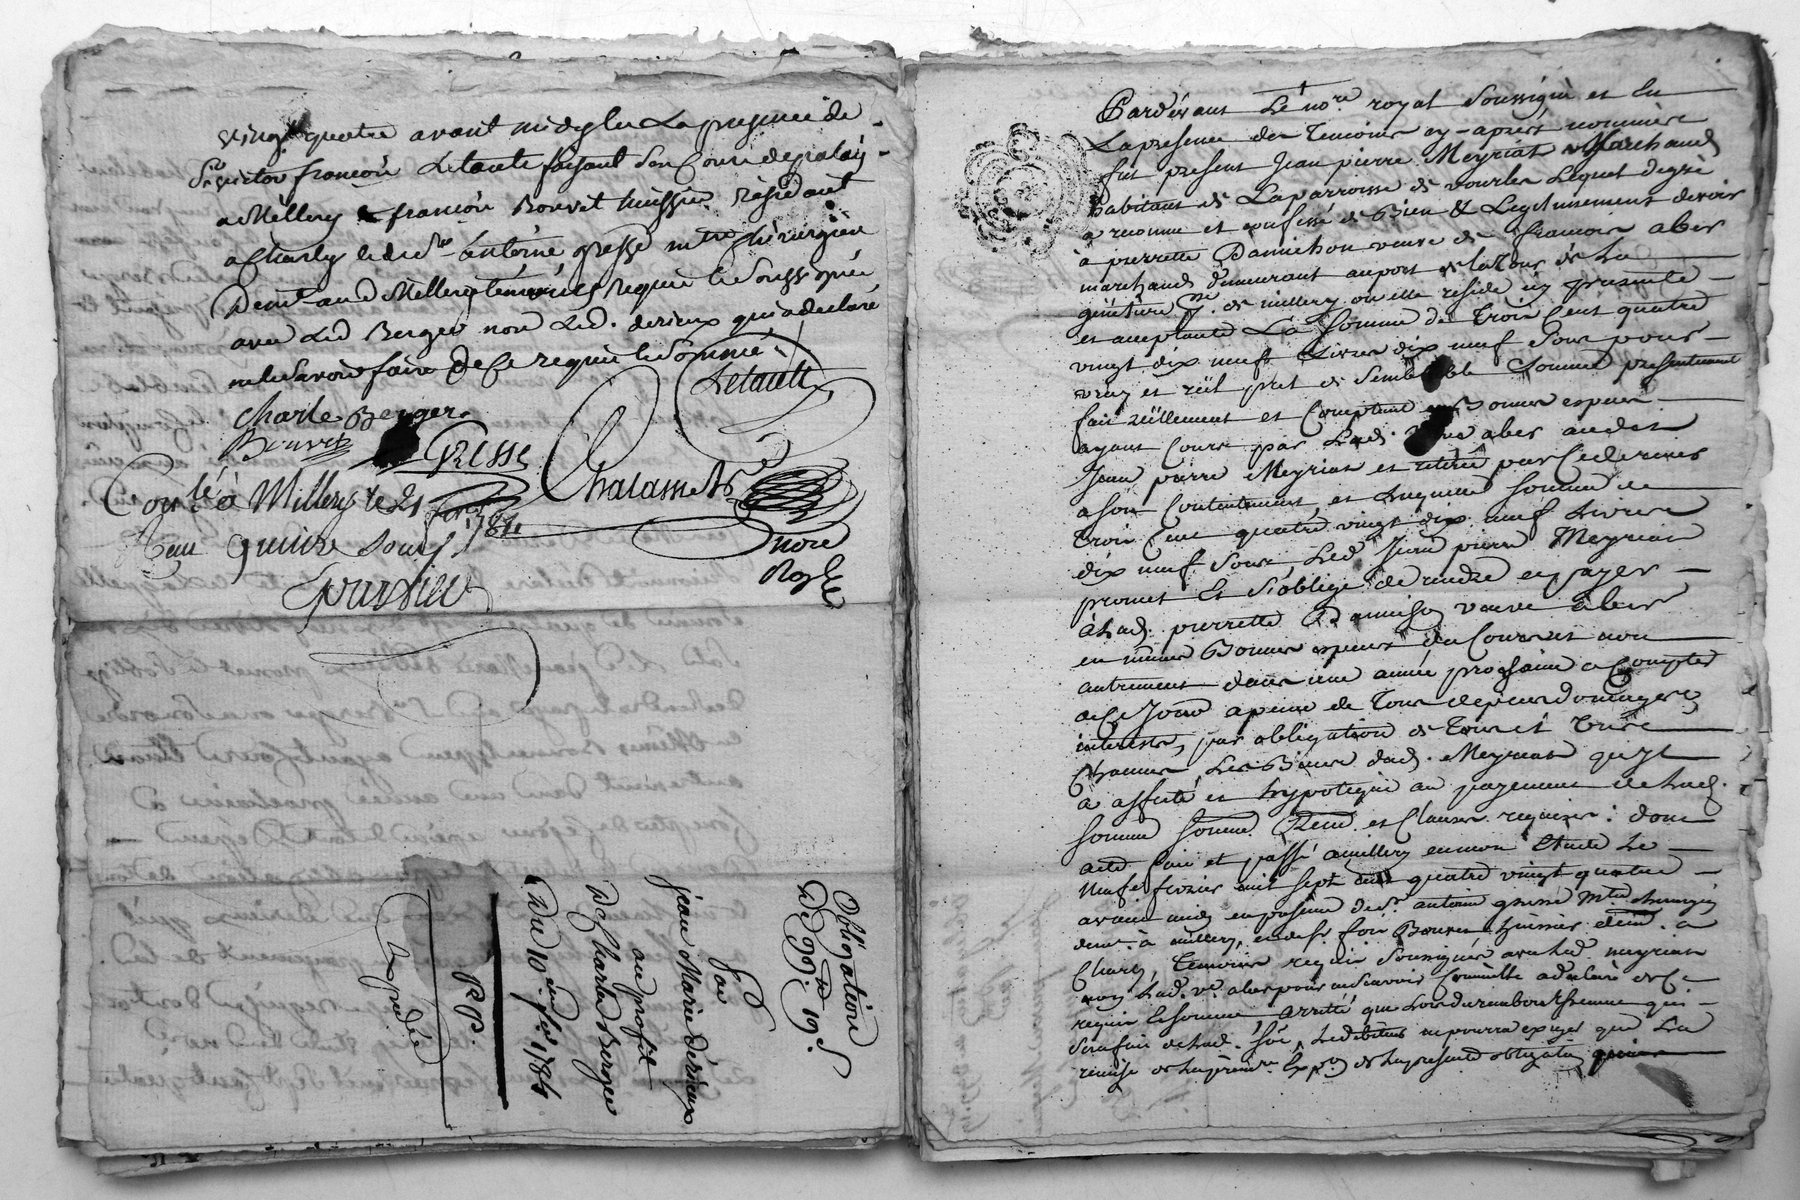 vingt quatre avant midy en La presence de
Sr victor françois Letault faisant son Cours de palais
a Millery & françois Bouvet huissier residant
a Charly le dit Sr Antoine Gresse mtre Chirurgien
Demt aud Millery temoins requis & soussignés
avec Led Berger non Led. derieux qui a declaré
ne le savoir faire de Ce requis & sommé
Letault
Charle Berger
Bouvet
GRESSE
Chatainet
nore
Royal
Conlé à Millery le 21 fevr 1784
Reçu quinze sous
Obligation
De 99.tt 19 s.
par
jean Marie derieux
au profit
De Charles Berger
Du 10.e fer 1784
R.p.
Expediée
Pardevant Le nore royal soussigné et En
La presence des temoins cy-après nommés
fut present Jean pierre Meyriat Marchand
habitant de La parroisse de vourles Lequel de gré
a reconnu et confessé de Bien & Legitimement devoir
à pierrette Damichon veuve de françois aber
marchand demeurant au port de la tour de La
psse de millery où elle reside icy presente
et acceptante La somme de trois Cent quatre
vingt dix neuf Livres dix neuf sous pour
vray et réel pret de semblable somme presentement
fait réellement et Comptant en Bonnes especes
ayant Cours par Lad. veuve aber audit
Jean pierre Meyriat et retirée par ce dernier
a son Contentement, et Laquelle somme de
trois Cent quatre vingt dix neuf Livres
dix neuf sous Led Jean pierre Meyriat
promet Et s'oblige de rendre et payer
à Lad. pierrette Damichon veuve aber
en mêmes Bonnes especes du Cours et non
autrement dans une année prochaine a Compter
de Ce Jour a peine de tous depens domages
interests, par obligation de tous et Un
Chacuns Les Biens dud. Meyriat qu'il
a affecté et hypotequé au payement de Lad.
somme Renon. et Clauses requises: dont
acte fait et passé a millery en mon Etude Le
neuf fevrier mil sept Cent quatre vingt quatre
avant midy en presence de Sr antoine gresse Mtre chirurgien
demt à millery, et de Sr fois Bouvet huissier demt a
Charly, temoins requis soussignés avec Led meyriat
non Lad. ve aber pour ne savoir Comme elle a declaré de Ce
requise & sommée arretté que Lors du remboursement qui
sera fait de Lad. soe Led debiteur ne pourra exiger que La
remise de la premre Expon de La presente obligation